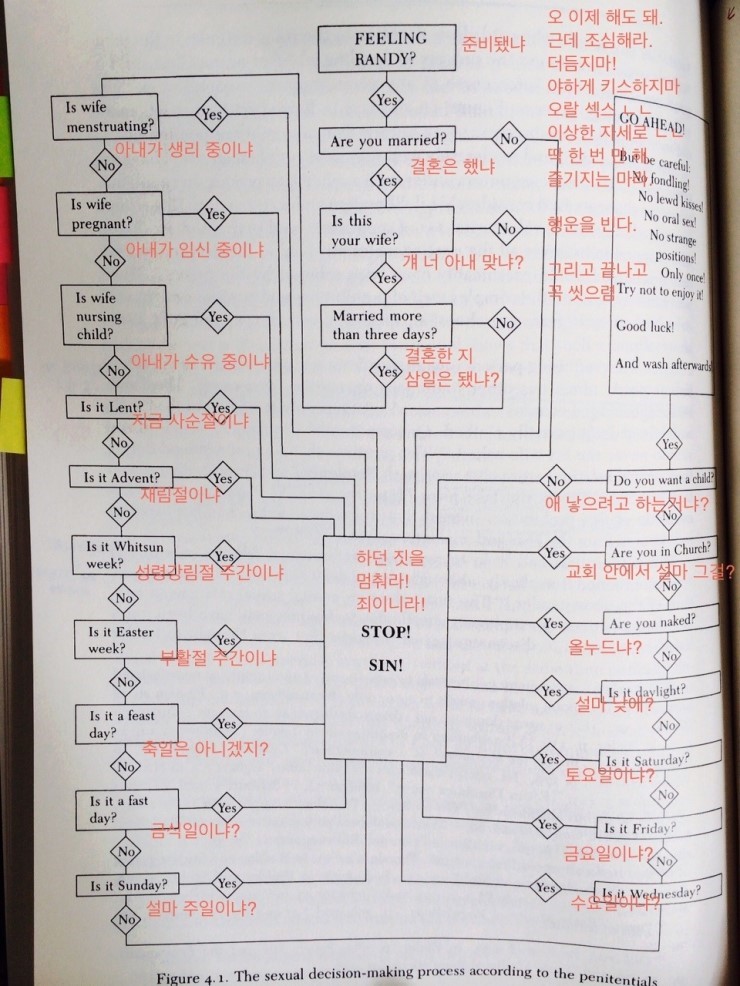 FEELING
RANDY?
준비됐냐
Yes
Are you married?
No
결혼은 했냐
Yes
Is this
your wife?
No
걔 너 아내 맞냐?
Yes
Married more
than three days?
No
결혼한 지
삼일은 됐냐?
Yes
Is wife
menstruating?
Yes
아내가 생리 중이냐
No
Is wife
pregnant?
Yes
아내가 임신 중이냐
No
Is wife
nursing
child?
Yes
아내가 수유 중이냐
No
Is it Lent?
Yes
지금 사순절이냐
No
Is it Advent?
Yes
재림절이냐
No
Is it Whitsun
week?
Yes
성령강림절 주간이냐
No
Is it Easter
week?
Yes
부활절 주간이냐
No
Is it a feast
day?
Yes
축일은 아니겠지?
No
Is it a fast
day?
Yes
금식일이냐?
No
Is it Sunday?
Yes
설마 주일이냐?
No
하던 짓을
멈춰라!
죄이니라!
STOP!
SIN!
Is it Wednesday?
Yes
수요일이냐?
No
Is it Friday?
Yes
금요일이냐?
No
Is it Saturday?
Yes
토요일이냐?
No
Is it daylight?
Yes
설마 낮에?
No
Are you naked?
Yes
올누드냐?
No
Are you in Church?
Yes
교회 안에서 설마 그걸?
No
Do you want a child?
No
애 낳으려고 하는거냐?
Yes
오 이제 해도 돼.
근데 조심해라.
더듬지마!
야하게 키스하지마
오랄 섹스 ㄴㄴ
이상한 자세로 ㄴㄴ
딱 한 번 만 해.
즐기지는 마라
행운을 빈다.
그리고 끝나고
꼭 씻으렴
GO AHEAD!
But be careful:
No fondling!
No lewd kisses!
No oral sex!
No strange
positions!
Only once!
Try not to enjoy it!
Good luck!
And wash afterwards
Figure 4.1. The sexual decision-making process according to the penitentials